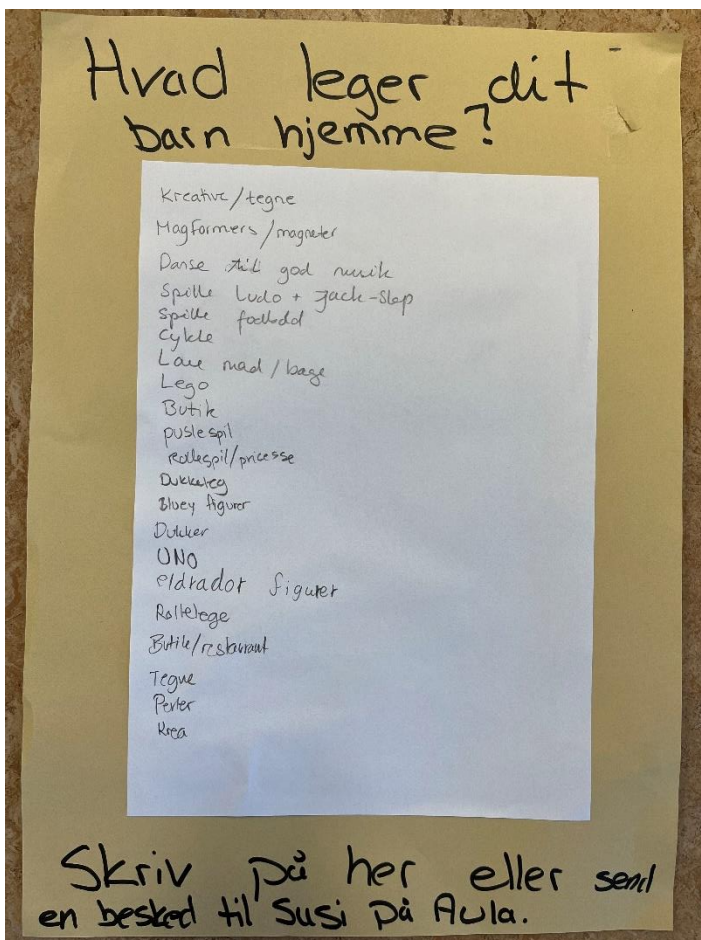 Hvad leger dit
barn hjemme?
Kreative/tegne
Magformers/magneter
Danse til god musik
Spille Ludo + Jack-Slap
Spille fodbold
Cykle
Lave mad/bage
Lego
Butik
puslespil
rollespil/pricesse
Dukkeleg
Bluey figurer
Dukker
UNO
eldrador figurer
Rollelege
Butik/restaurant
Tegne
Perler
Krea
Skriv på her eller send
en besked til Susi på Aula.